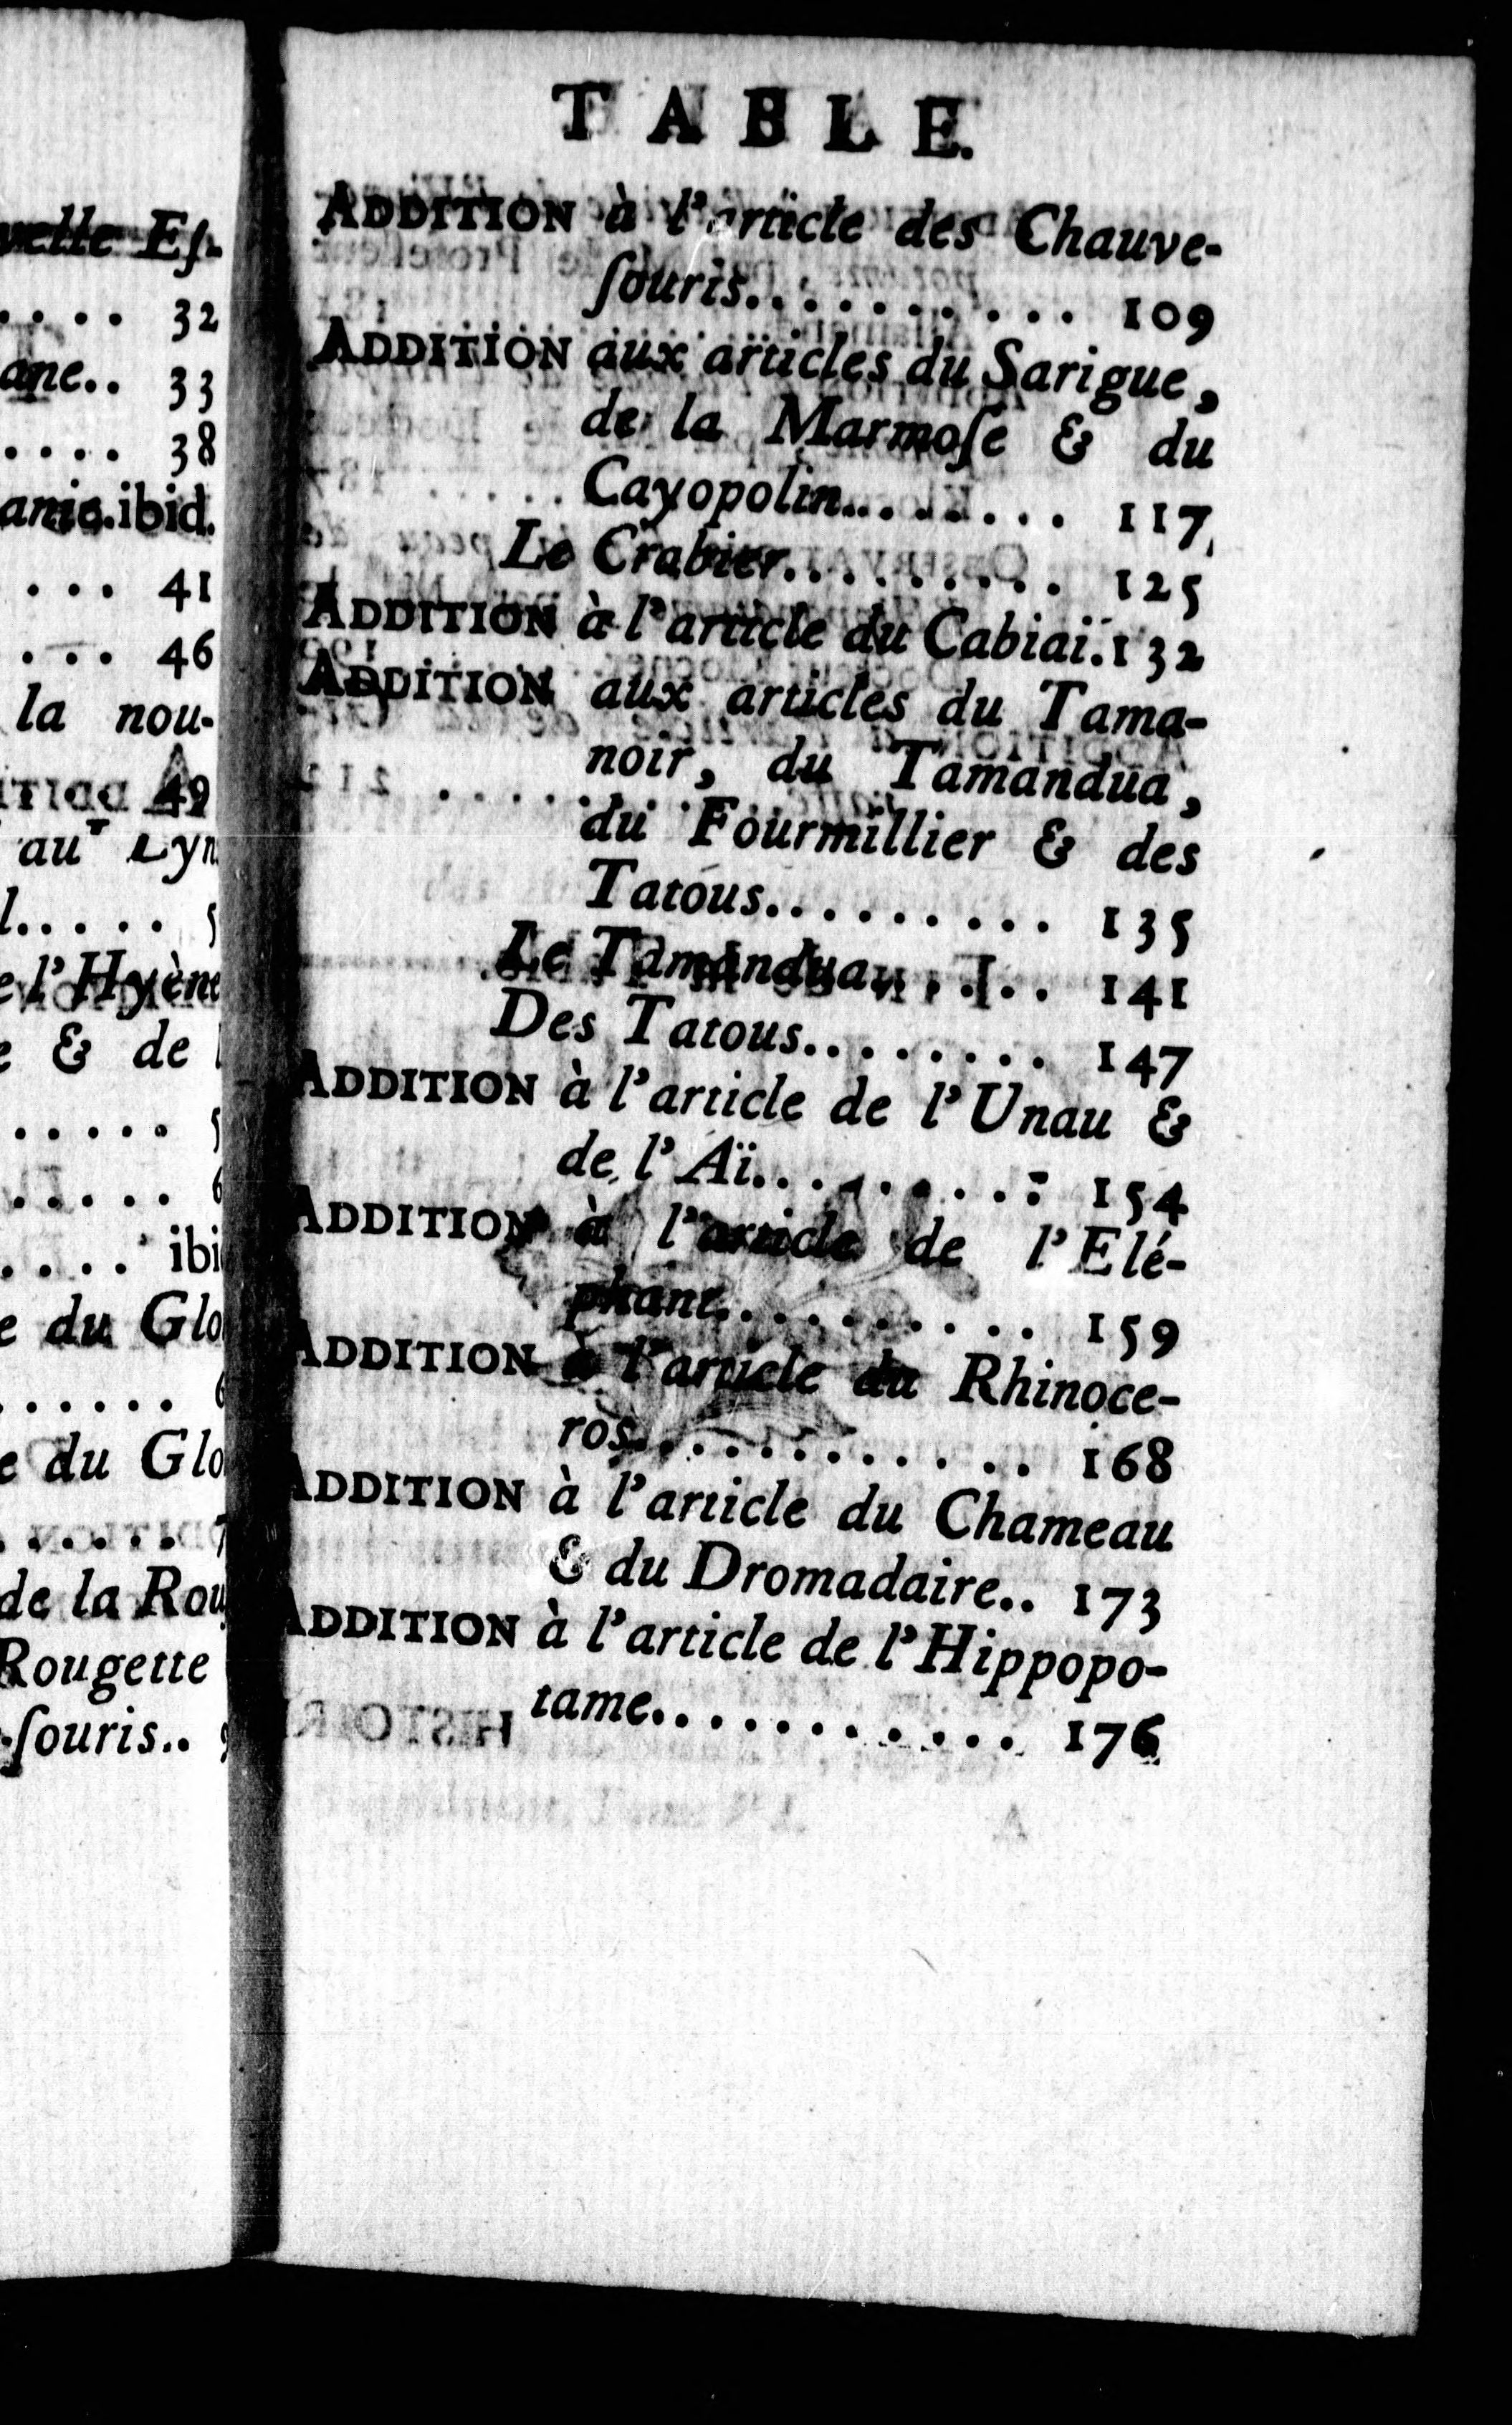 velle Eſ-
.... 32
ane.. 33
.... 38
anie.ibid.
... 41
... 46
la nou-
49
au Lyn
l.....
e l'Hyène
e & de
.....
.....
.... ibi
e du Glo
......
e du Glo
......
de la Rou
Rougette
-ſouris..
TABLE.
ADDITION à l'article des Chauve-
ſouris........... 109
ADDITION aux articles du Sarigue,
de la Marmoſe & du
Cayopolin........ 117
Le Crabier.......... 125
ADDITION à l'article du Cabiai. 132
ADDITION aux articles du Tama-
noir, du Tamandua,
du Fourmillier & des
Tatous.......... 135
Le Tamandua...... 141
Des Tatous......... 147
ADDITION à l'article de l'Unau &
de l'Aï.......... 154
ADDITION à l'article de l'Elé-
phant........... 159
ADDITION à l'article du Rhinoce-
ros............. 168
ADDITION à l'article du Chameau
& du Dromadaire.. 173
ADDITION à l'article de l'Hippopo-
tame............ 176